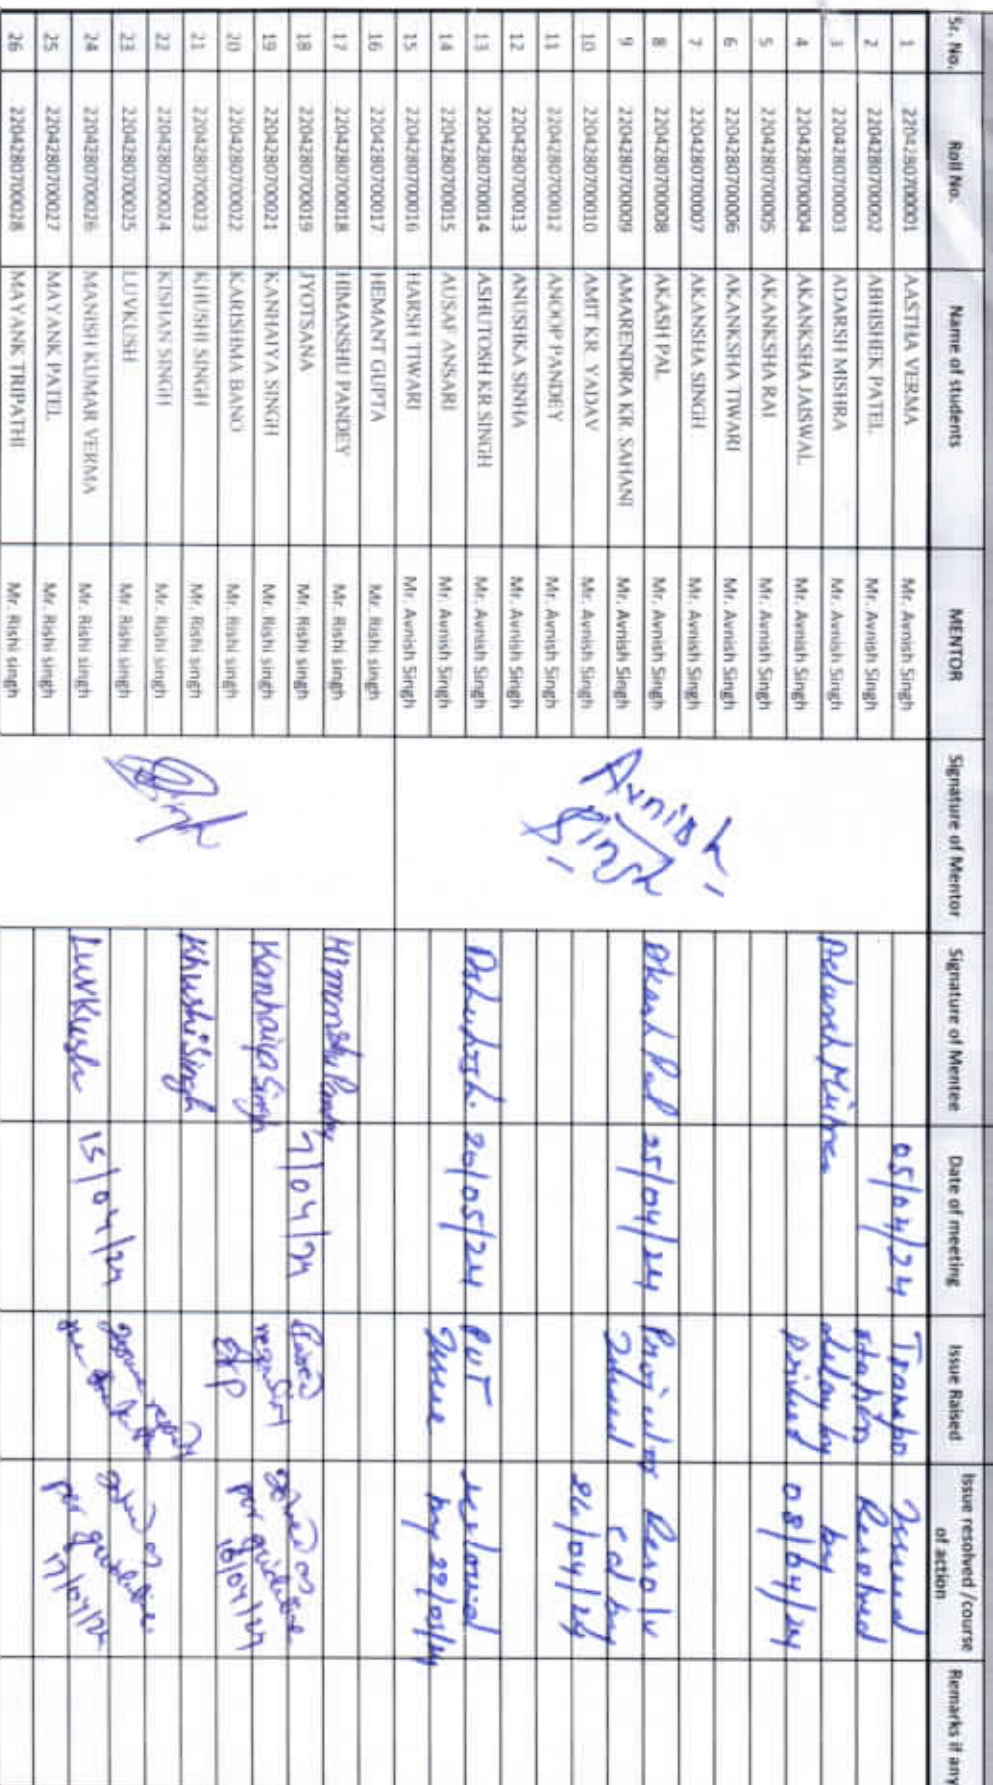 Sr. No. Roll No. Name of students MENTOR Signature of Mentor Signature of Mentee Date of meeting Issue Raised Issue resolved /course of action Remarks if any
1 2204280700001 AASTHA VERMA Mr. Avnish Singh 05/04/24 Transpo Issue
2 2204280700002 ABHISHEK PATEL Mr. Avnish Singh station Resolved
3 2204280700003 ADARSH MISHRA Mr. Avnish Singh Adarsh Mishra delay by by
4 2204280700004 AKANKSHA JAISWAL Mr. Avnish Singh 08/04/24
5 2204280700005 AKANKSHA RAI Mr. Avnish Singh
6 2204280700006 AKANKSHA TIWARI Mr. Avnish Singh
7 2204280700007 AKANSHA SINGH Mr. Avnish Singh
8 2204280700008 AKASH PAL Mr. Avnish Singh Avnish Singh Akash Pal 25/04/24 Resolv
9 2204280700009 AMARENDRA KR. SAHANI Mr. Avnish Singh ed by
10 2204280700010 AMIT KR. YADAV Mr. Avnish Singh 26/04/24
11 2204280700012 ANOOP PANDEY Mr. Avnish Singh
12 2204280700013 ANUSHKA SINHA Mr. Avnish Singh
13 2204280700014 ASHUTOSH KR SINGH Mr. Avnish Singh Ashutosh. 20/05/24 PUT
14 2204280700015 AUSAF ANSARI Mr. Avnish Singh Issue by 22/05/24
15 2204280700016 HARSH TIWARI Mr. Avnish Singh
16 2204280700017 HEMANT GUPTA Mr. Rishi singh
17 2204280700018 HIMANSHU PANDEY Mr. Rishi singh Himanshu Pandey
18 2204280700019 JYOTSANA Mr. Rishi singh 7/04/24
19 2204280700021 KANHAIYA SINGH Mr. Rishi singh Kanhaiya Singh regarding solved as
20 2204280700022 KARISHMA BANO Mr. Rishi singh per guideline
21 2204280700023 KHUSHI SINGH Mr. Rishi singh Khushi Singh
22 2204280700024 KISHAN SINGH Mr. Rishi singh Singh
23 2204280700025 LUVKUSH Mr. Rishi singh solved as
24 2204280700026 MANISH KUMAR VERMA Mr. Rishi singh Luvkush 15/04/24 per guideline
25 2204280700027 MAYANK PATEL Mr. Rishi singh 17/04/24
26 2204280700028 MAYANK TRIPATHI Mr. Rishi singh